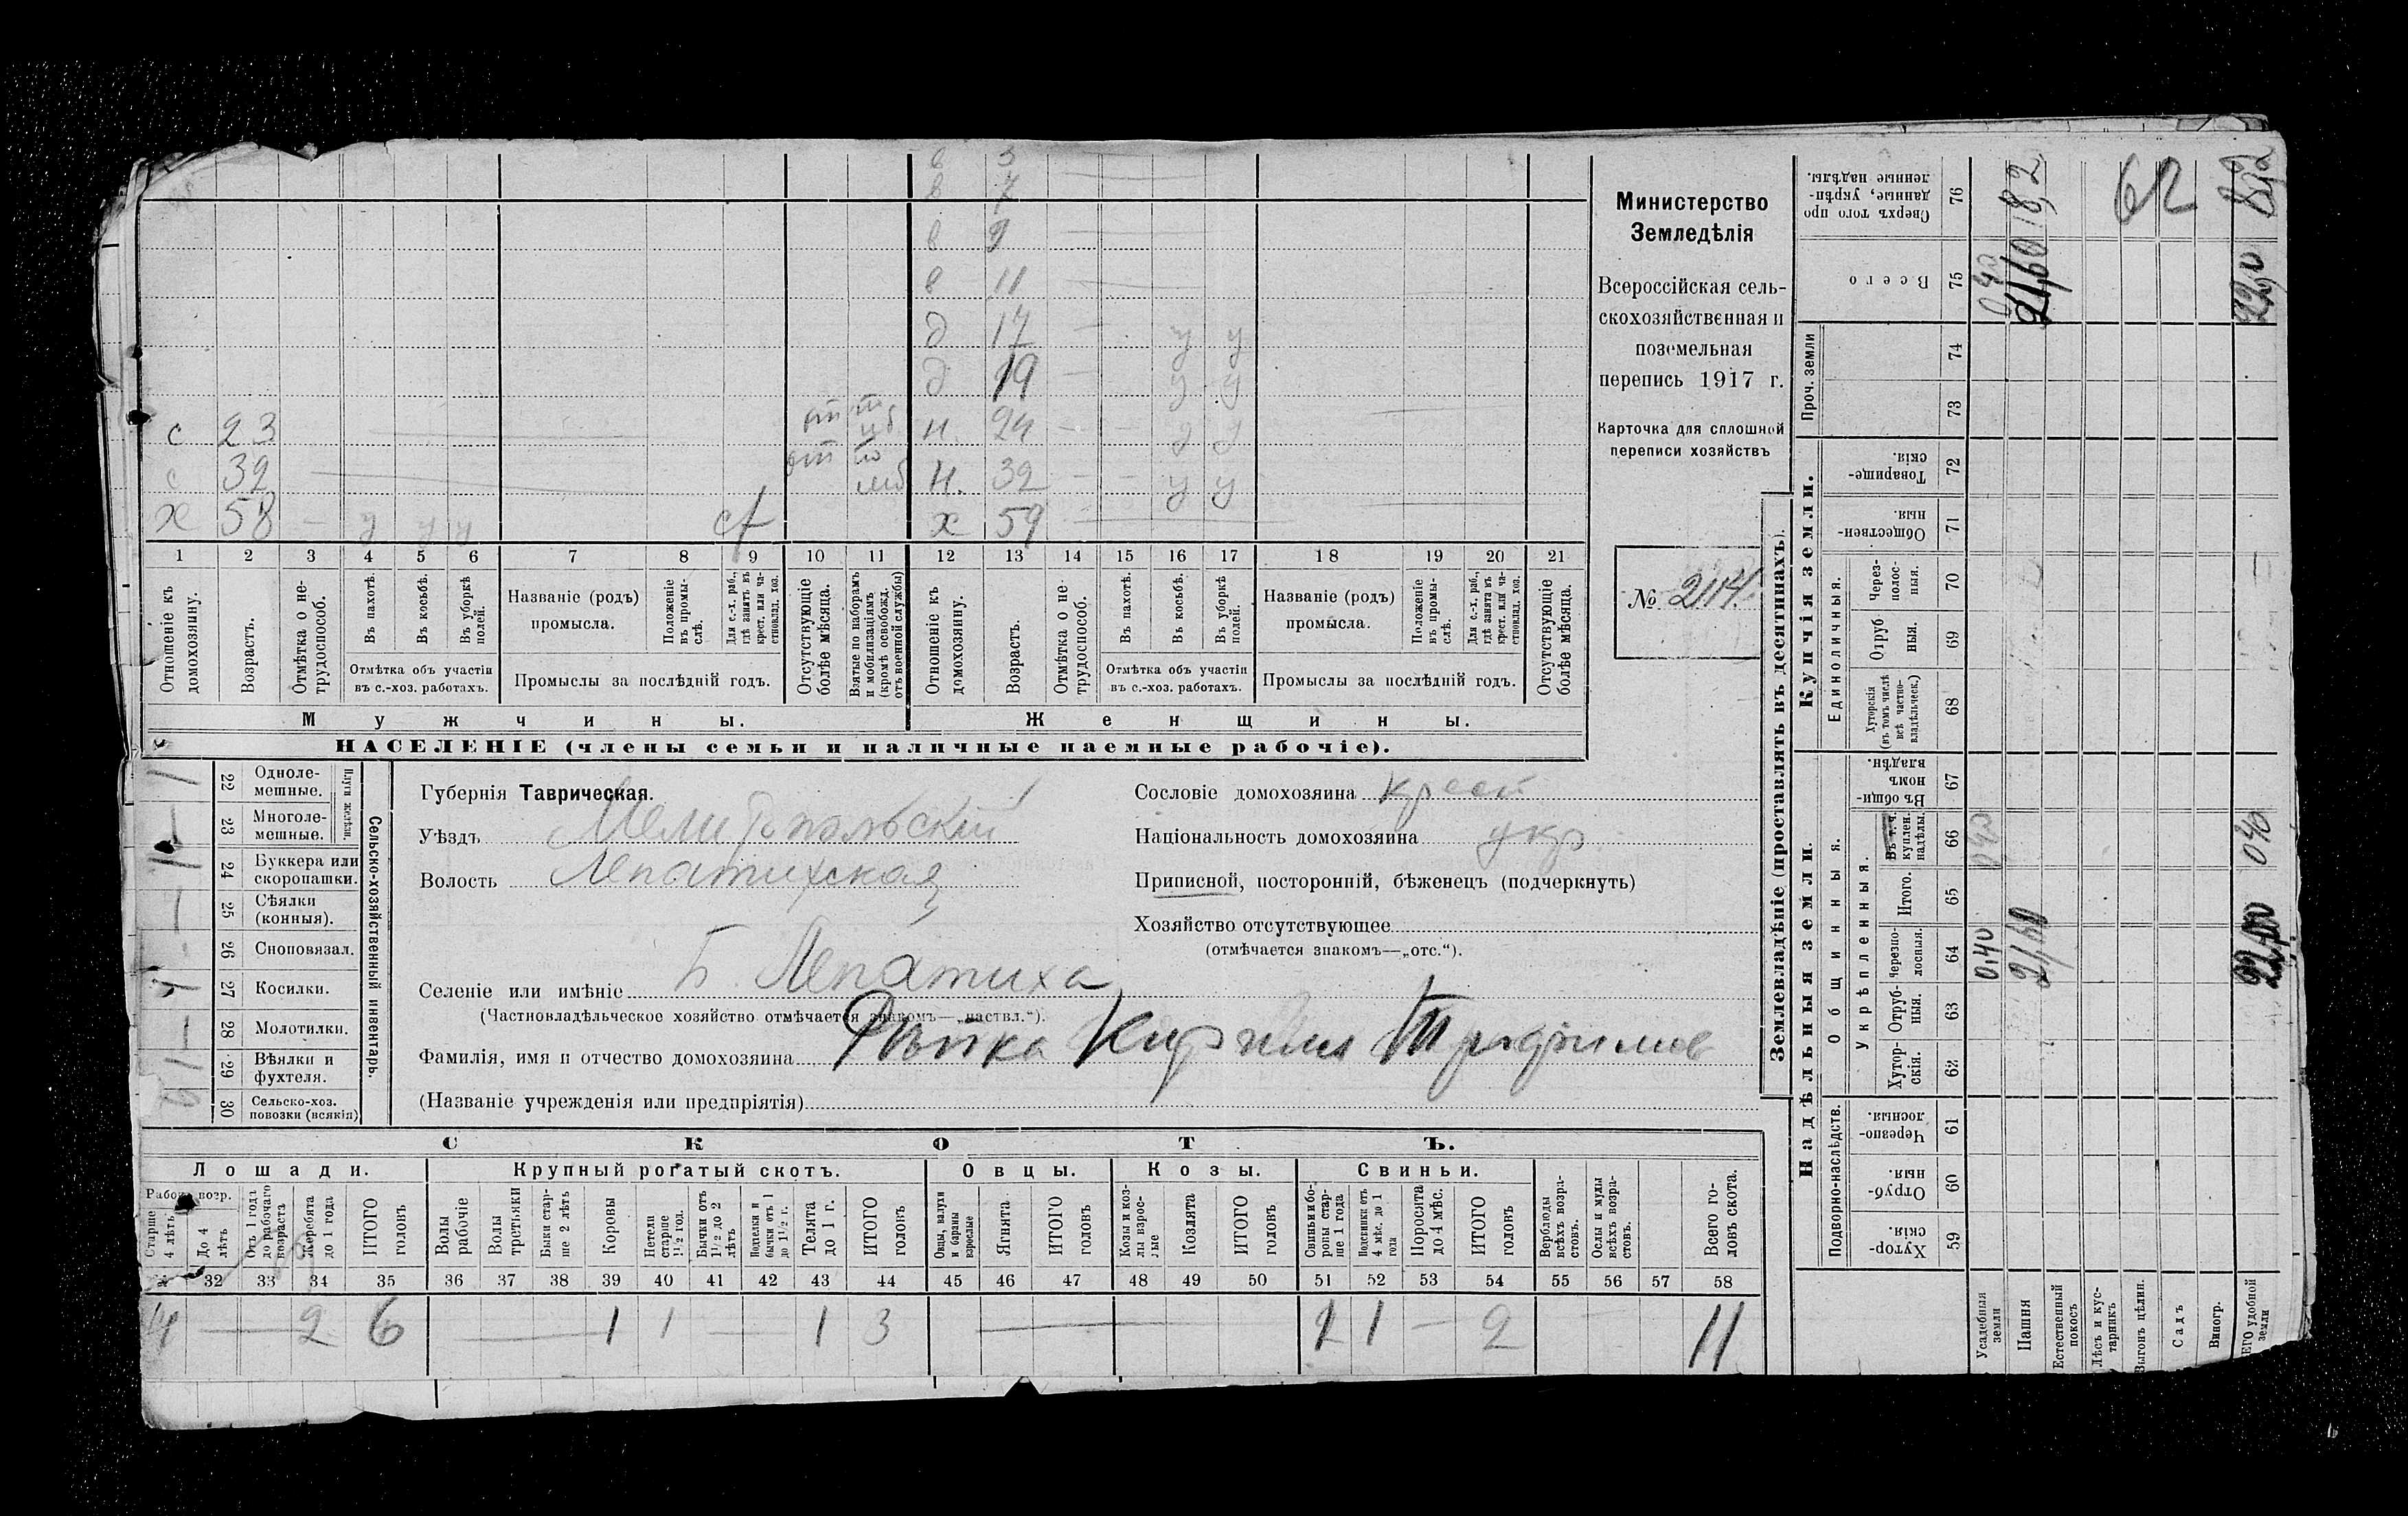 в 3
в 7
в 9
в 11
д 17 — у у
д 19 — у у
с 23 н. 24 — — у у
с 32 н. 32 — — у у
х 58 — у у у х 59
1 2 3 4 5 6 7 8 9 10 11 12 13 14 15 16 17 18 19 20 21
Отношеніе къ домохозяину.
Возрастъ.
Отмѣтка о не-трудоспособ.
Въ пахотѣ.
Въ косьбѣ.
Въ уборкѣ полей.
Отмѣтка объ участіи въ с.-хоз. работахъ.
Названіе (родъ) промысла.
Положеніе въ промы-слѣ.
Для с.-х. раб., гдѣ занятъ въ крест. или ча-стновлад. хоз.
Промыслы за послѣдній годъ.
Отсутствующіе болѣе мѣсяца.
Взятые по наборамъ и мобилизаціямъ (кромѣ освобожд. отъ военной службы)
Отношеніе къ домохозяину.
Возрастъ.
Отмѣтка о не-трудоспособ.
Въ пахотѣ.
Въ косьбѣ.
Въ уборкѣ полей.
Отмѣтка объ участіи въ с.-хоз. работахъ.
Названіе (родъ) промысла.
Положеніе въ промы-слѣ.
Для с.-х. раб., гдѣ занята въ крест. или ча-стновлад. хоз.
Промыслы за послѣдній годъ.
Отсутствующіе болѣе мѣсяца.
Мужчины. Женщины.
НАСЕЛЕНІЕ (члены семьи и наличные наемные рабочіе).
Министерство
Земледѣлія
Всероссійская сель-
скохозяйственная и
поземельная
перепись 1917 г.
Карточка для сплошной
переписи хозяйствъ
№ 2114
Сельско-хозяйственный инвентарь.
Плуги желѣзн.
22 Одноле-мешные.
23 Многоле-мешные.
24 Буккера или скоропашки.
25 Сѣялки (конныя).
26 Сноповязал.
27 Косилки.
28 Молотилки.
29 Вѣялки и фухтеля.
30 Сельско-хоз. повозки (всякія)
Губернія Таврическая.
Уѣздъ Мелитопольскій
Волость Лепатихская
Селеніе или имѣніе Б. Лепатиха
(Частновладѣльческое хозяйство отмѣчается знакомъ—„частвл.“).
Фамилія, имя и отчество домохозяина Трофимов
(Названіе учрежденія или предпріятія)
Сословіе домохозяина крест
Національность домохозяина укр.
Приписной, посторонній, бѣженецъ (подчеркнуть)
Хозяйство отсутствующее
(отмѣчается знакомъ—„отс.“).
СКОТЪ.
Лошади. Крупный рогатый скотъ. Овцы. Козы. Свиньи.
Рабоч. возр.
Старше 4 лѣтъ
До 4 лѣтъ
Отъ 1 года до рабочаго возраста
Жеребята до 1 года
ИТОГО головъ
Волы рабочіе
Волы третьяки
Быки стар-ше 2 лѣтъ
Коровы
Нетели старше 1½ год.
Бычки отъ 1½ до 2 лѣтъ
Подтелки и бычки отъ 1 до 1½ г.
Телята до 1 г.
ИТОГО головъ
Овцы, валухи и бараны взрослые
Ягнята
ИТОГО головъ
Козы и коз-лы взрос-лые
Козлята
ИТОГО головъ
Свиньи и бо-ровы стар-ше 1 года
Подсвинки отъ 4 мѣс. до 1 года
Поросята до 4 мѣс.
ИТОГО головъ
Верблюды всѣхъ возра-стовъ.
Ослы и мулы всѣхъ возра-стовъ.
Всего го-ловъ скота.
32 33 34 35 36 37 38 39 40 41 42 43 44 45 46 47 48 49 50 51 52 53 54 55 56 57 58
4 — 2 6 — 1 1 — 1 3 — 1 — 2 — 11
Землевладѣніе (проставлять въ десятинахъ).
Надѣльныя земли. Купчія земли. Проч. земли
Подворно-наслѣдств.
Общинныя.
Укрѣпленныя.
Единоличныя.
Хутор-скія. 59
Отруб-ныя. 60
Черезпо-лосныя. 61
Хутор-скія. 62
Отруб-ныя. 63
Черезпо-лосныя. 64
Итого. 65
Въ т. ч. куплен. надѣлы. 66
Въ общин-номъ владѣн. 67
Хуторскія (въ томъ числѣ всѣ частно-владѣльческ.) 68
Отруб-ныя. 69
Через-полос-ныя. 70
Обществен-ныя. 71
Товарище-скія. 72
73
74
Всего 75
Сверхъ того про-данные, укрѣп-ленные надѣлы. 76
Усадебныя земли 0,40
Пашня 21,60 21,60 18,2
Естественный покосъ
Лѣсъ и кус-тарникъ
Выгонъ цѣлин. 62
Садъ
Виногр.
ЕГО удобной земли 22,00 040